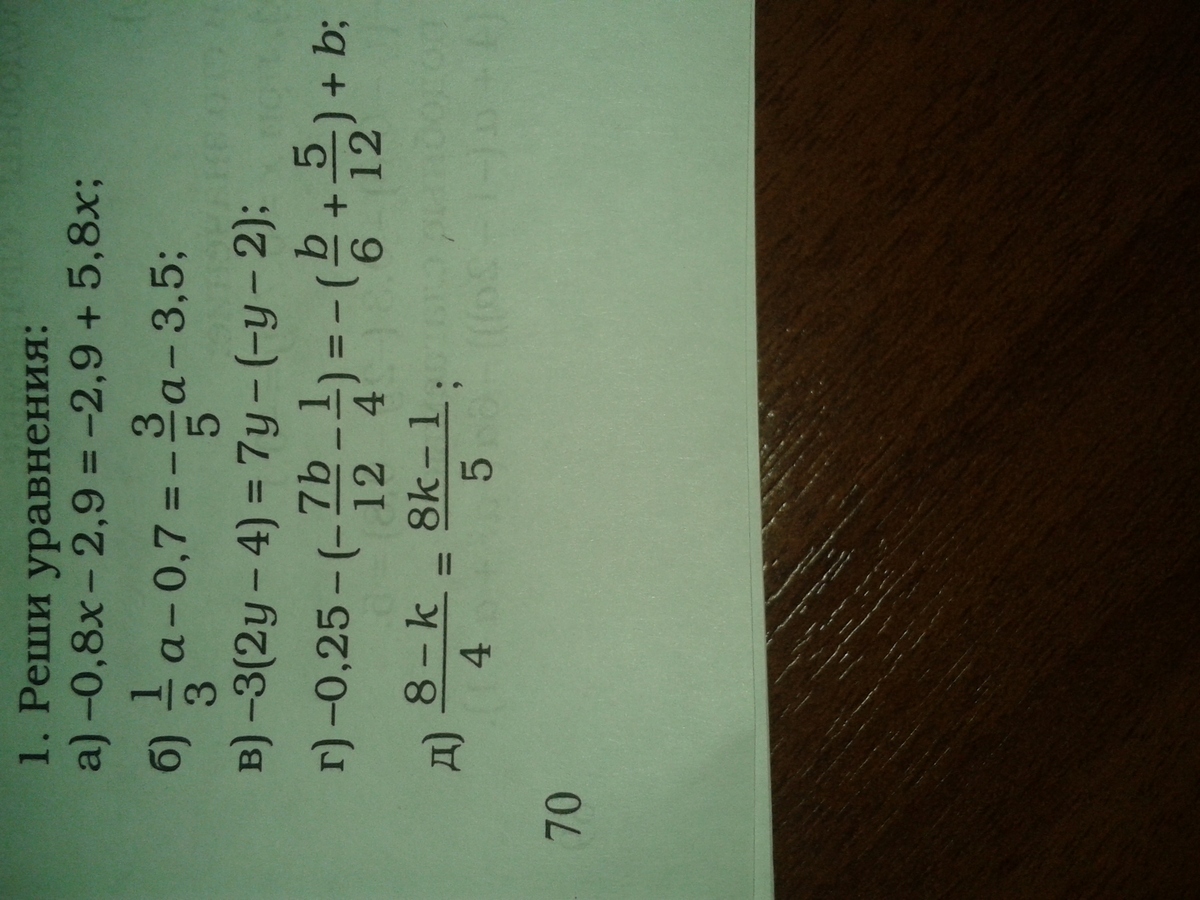 1. Реши уравнения:
а) –0,8x – 2,9 = –2,9 + 5,8x;
б) 1/3 a – 0,7 = – 3/5 a – 3,5;
в) –3(2y – 4) = 7y – (–y – 2);
г) –0,25 – (– 7b/12 – 1/4) = – (b/6 + 5/12) + b;
д) 8 – k/4 = 8k – 1/5;
70